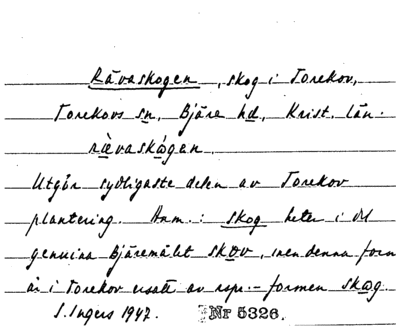 Rävaskogen, skog i Torekov,
Torekovs sn, Bjäre hd, Krist. län.
rìevaskógen
Utgör sydligaste delen av Torekov
plantering. Anm.: skog heter i det
genuina Bjäremålet skov, men denna form
är i Torekov ersatt av rspr.-formen skog.
S. Ingers 1947. Nr 5326.